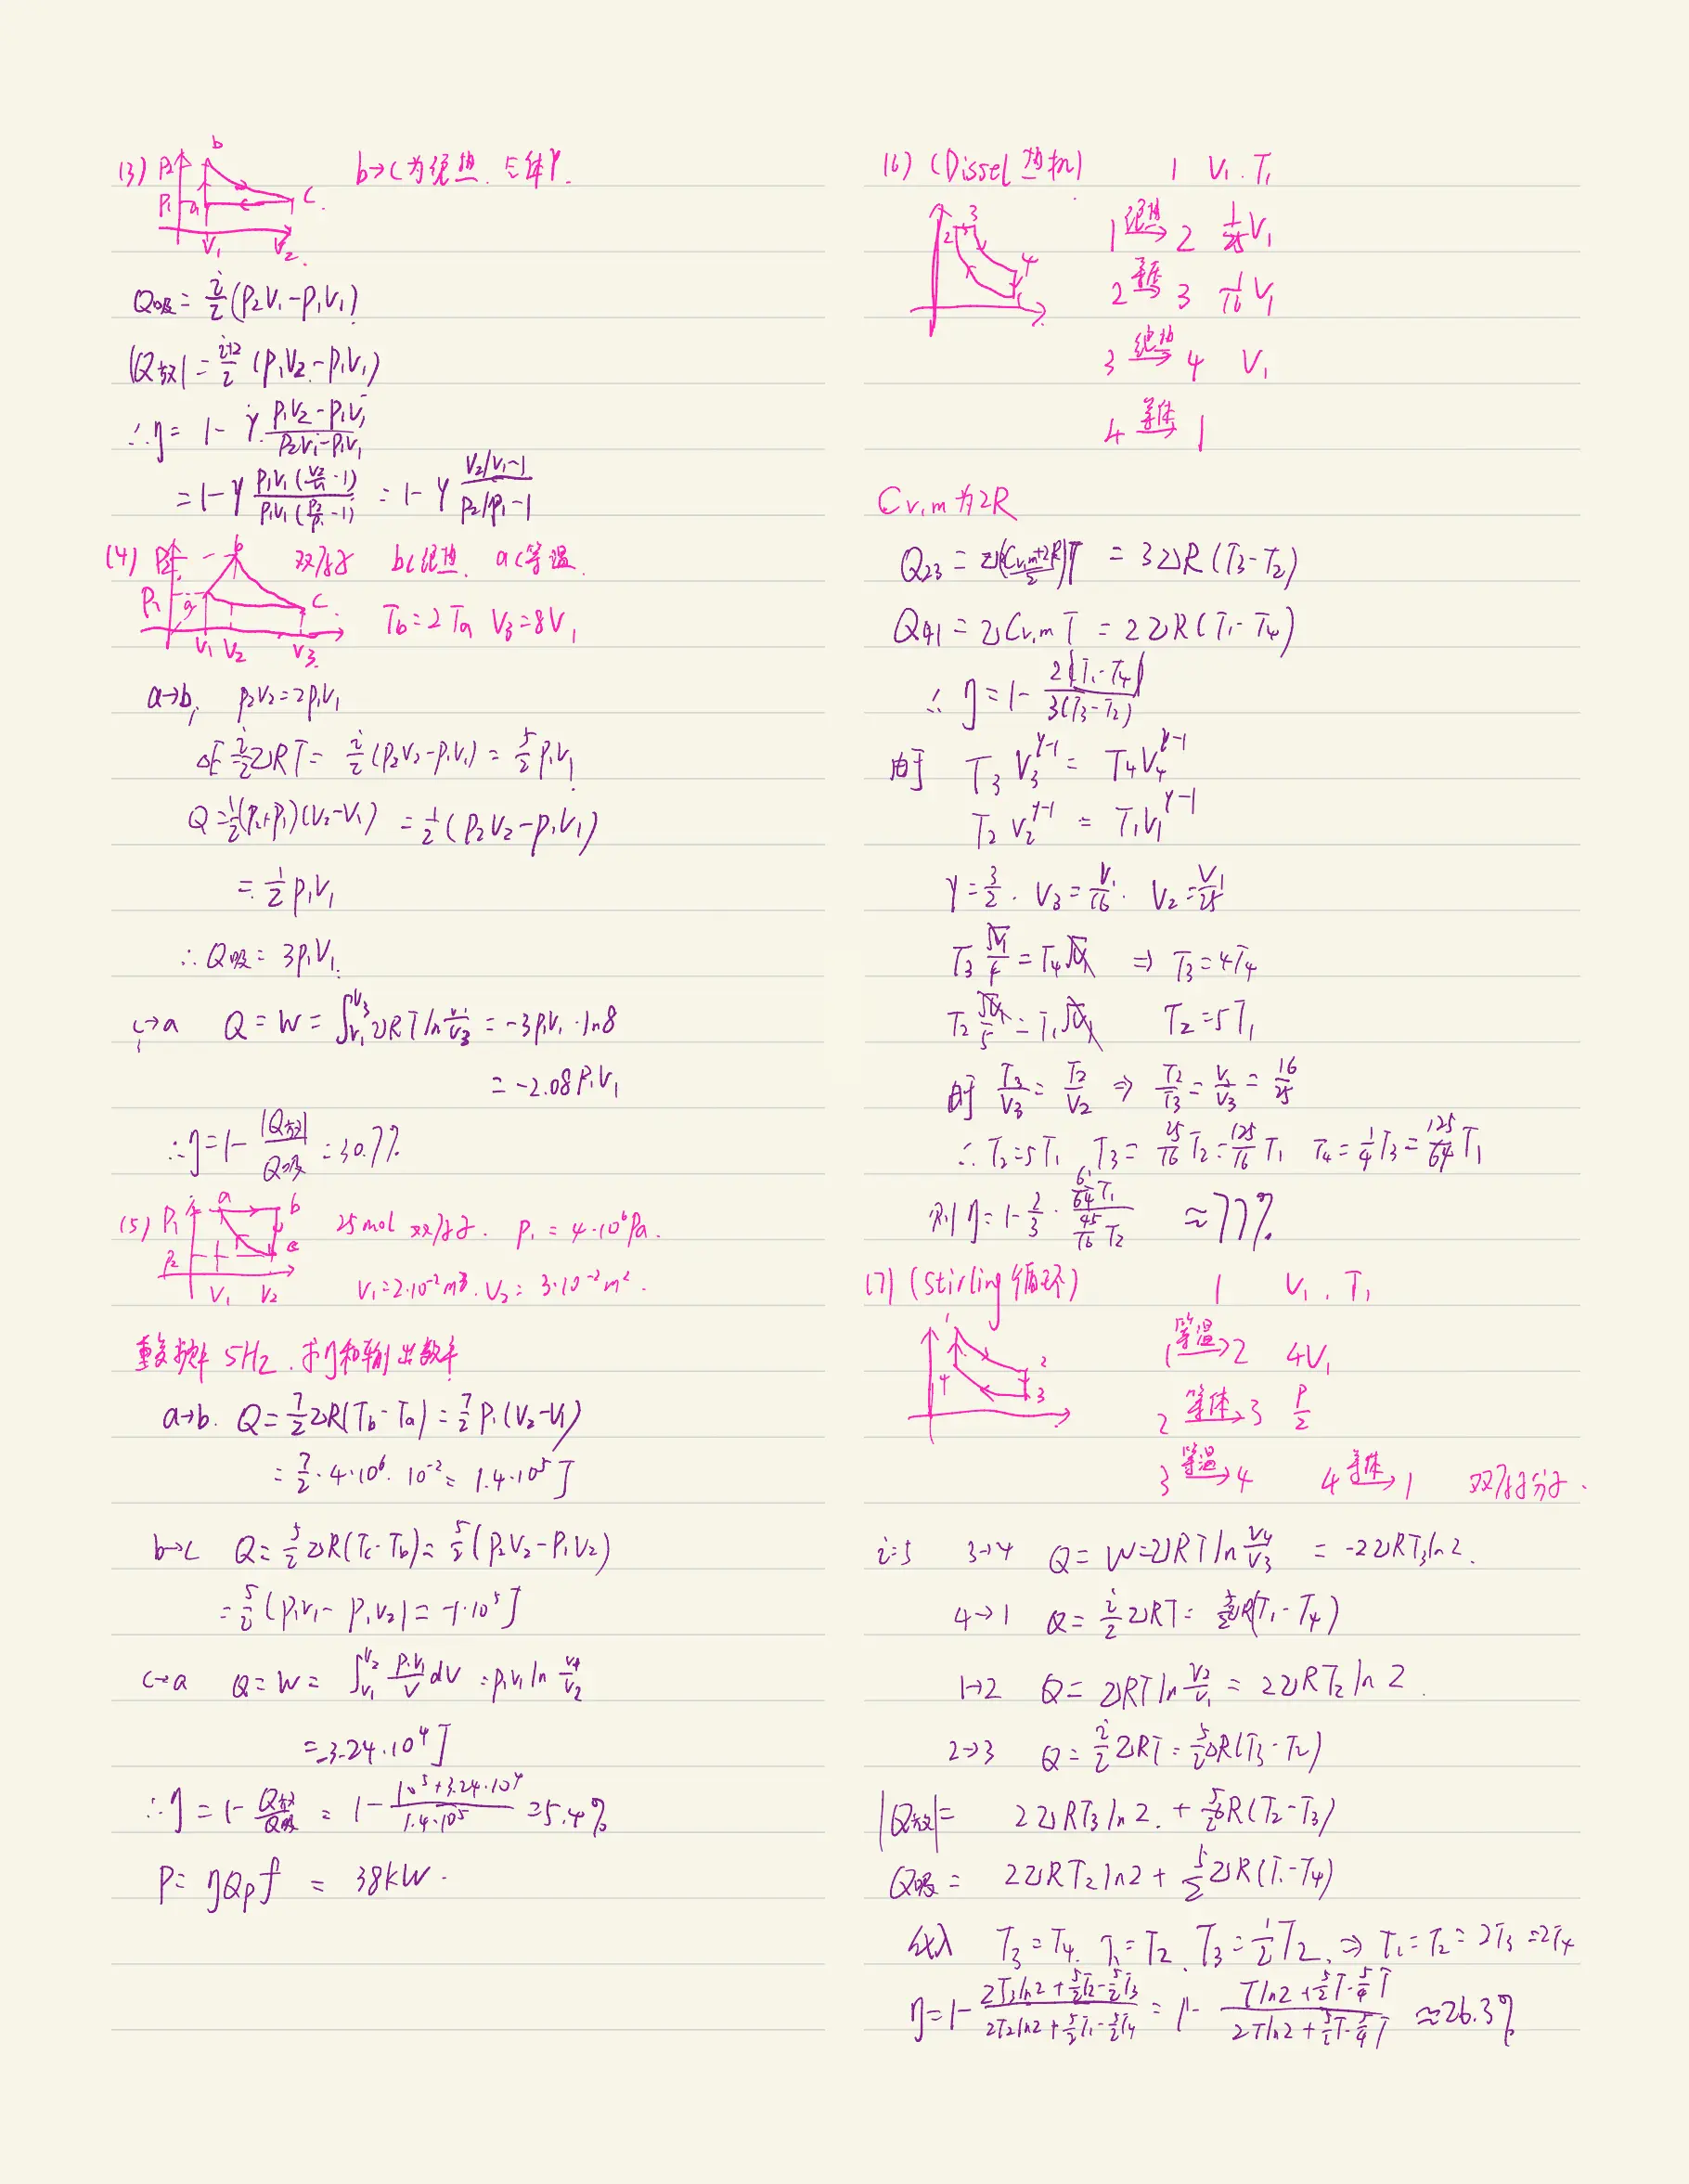 (3) P₂ b b→c为绝热. 气体γ.
P₁ a c
V₁ V₂
Q吸 = i/2 (P₂V₁-P₁V₁)
|Q放| = (i+2)/2 (P₁V₂-P₁V₁)
∴ η = 1 - γ · (P₁V₂-P₁V₁)/(P₂V₁-P₁V₁)
= 1 - γ P₁V₁(V₂/V₁ - 1)/P₁V₁(P₂/P₁ - 1) = 1 - γ (V₂/V₁-1)/(P₂/P₁-1)
(4) P₂ b 双原子 bc绝热. ac等温
P₁ a c Tb=2Ta V₃=8V₁
V₁ V₂ V₃
a→b, P₂V₂=2P₁V₁
ΔE = i/2 νRT = i/2 (P₂V₂-P₁V₁) = 5/2 P₁V₁
Q = 1/2 (P₂+P₁)(V₂-V₁) = 1/2 (P₂V₂-P₁V₁)
= 1/2 P₁V₁
∴ Q吸 = 3P₁V₁
c→a Q = W = ∫_{V₁}^{V₃} νRT ln V₁/V₃ = -3P₁V₁·ln8
= -2.08P₁V₁
∴ η = 1 - |Q放|/Q吸 = 30.7%
(5) P₁ a b 25mol 双原子. P₁ = 4·10⁶Pa.
P₂ c
V₁ V₂ V₁=2·10⁻²m³. V₂= 3·10⁻²m².
重复频率 5Hz. 求η和输出功率
a→b. Q = 7/2 νR(Tb-Ta) = 7/2 P₁(V₂-V₁)
= 7/2 · 4·10⁶ · 10⁻² = 1.4·10⁵J
b→c Q = 5/2 νR(Tc-Tb) = 5/2 (P₂V₂-P₁V₂)
= 5/2 (P₁V₁-P₁V₂) = -1·10⁵J
c→a Q = W = ∫_{V₁}^{V₂} P₁V₁/V dV = P₁V₁ ln V₁/V₂
= -3.24·10⁴J
∴ η = 1 - Q放/Q吸 = 1 - (10⁵+3.24·10⁴)/(1.4·10⁵) = 5.4%
P = ηQ_p f = 38kW.
(6) (Dissel热机) 1 V₁. T₁
3 2 4 1 1 绝热→ 2 1/25 V₁
2 等压→ 3 1/16 V₁
3 绝热→ 4 V₁
4 等体→ 1
Cv,m 为2R
Q₂₃ = ν T = 3νR(T₃-T₂)
Q₄₁ = νCv,m T = 2νR(T₁-T₄)
∴ η = 1 - 2|T₁-T₄|/3(T₃-T₂)
由于 T₃V₃^{γ-1} = T₄V₄^{γ-1}
T₂V₂^{γ-1} = T₁V₁^{γ-1}
γ = 3/2. V₃ = V₁/16. V₂ = V₁/25
T₃ √V₁/4 = T₄√V₁ ⇒ T₃=4T₄
T₂ √V₁/5 = T₁√V₁ T₂=5T₁
由于 T₃/V₃ = T₂/V₂ ⇒ T₂/T₃ = V₂/V₃ = 16/25
∴ T₂=5T₁ T₃ = 25/16 T₂ = 125/16 T₁ T₄ = 1/4 T₃ = 125/64 T₁
则 η = 1 - 2/3 · (61/64 T₁)/(45/16 T₂) ≈77%
(7) (Stirling循环) 1 V₁. T₁
1 2 3 4 1 等温→ 2 4V₁
2 等体→ 3 P/2
3 等温→ 4 4 等体→ 1 双原子分子.
i=5 3→4 Q = W = νRT ln V₄/V₃ = -2νRT₃ln2.
4→1 Q = i/2 νRT = 5/2 νR(T₁-T₄)
1→2 Q = νRT ln V₂/V₁ = 2νRT₂ ln 2.
2→3 Q = i/2 νRT = 5/2 νR(T₃-T₂)
|Q放| = 2νRT₃ln2. + 5/2 νR(T₂-T₃)
Q吸 = 2νRT₂ln2 + 5/2 νR(T₁-T₄)
代入 T₃=T₄. T₁=T₂. T₃=1/2 T₂. ⇒ T₁=T₂=2T₃=2T₄
η = 1 - (2T₃ln2 + 5/2 T₂ - 5/2 T₃)/(2T₂ln2 + 5/2 T₁ - 5/2 T₄) = 1 - (Tln2 + 5/2 T - 5/4 T)/(2Tln2 + 5/2 T - 5/4 T) ≈26.3%